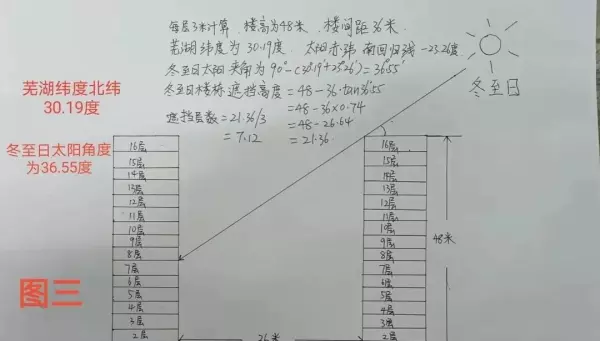 每层3米计算,楼高为48米,楼间距36米.
芜湖纬度为30.19度,太阳赤纬 南回归线-23.26度
冬至日太阳夹角为90°-(30°19′+23°26′)=36°55′
冬至日楼栋遮挡高度=48-36·tan36°55′
=48-36×0.74
=48-26.64
=21.36
遮挡层数=21.36/3
=7.12
冬至日
芜湖纬度北纬
30.19度
冬至日太阳角度
为36.55度
16层
15层
14层
13层
12层
11层
10层
9层
8层
7层
6层
5层
4层
3层
2层
图三
36米
16层
15层
14层
13层
12层
11层
10层
9层
8层
7层
6层
5层
4层
3层
2层
48米